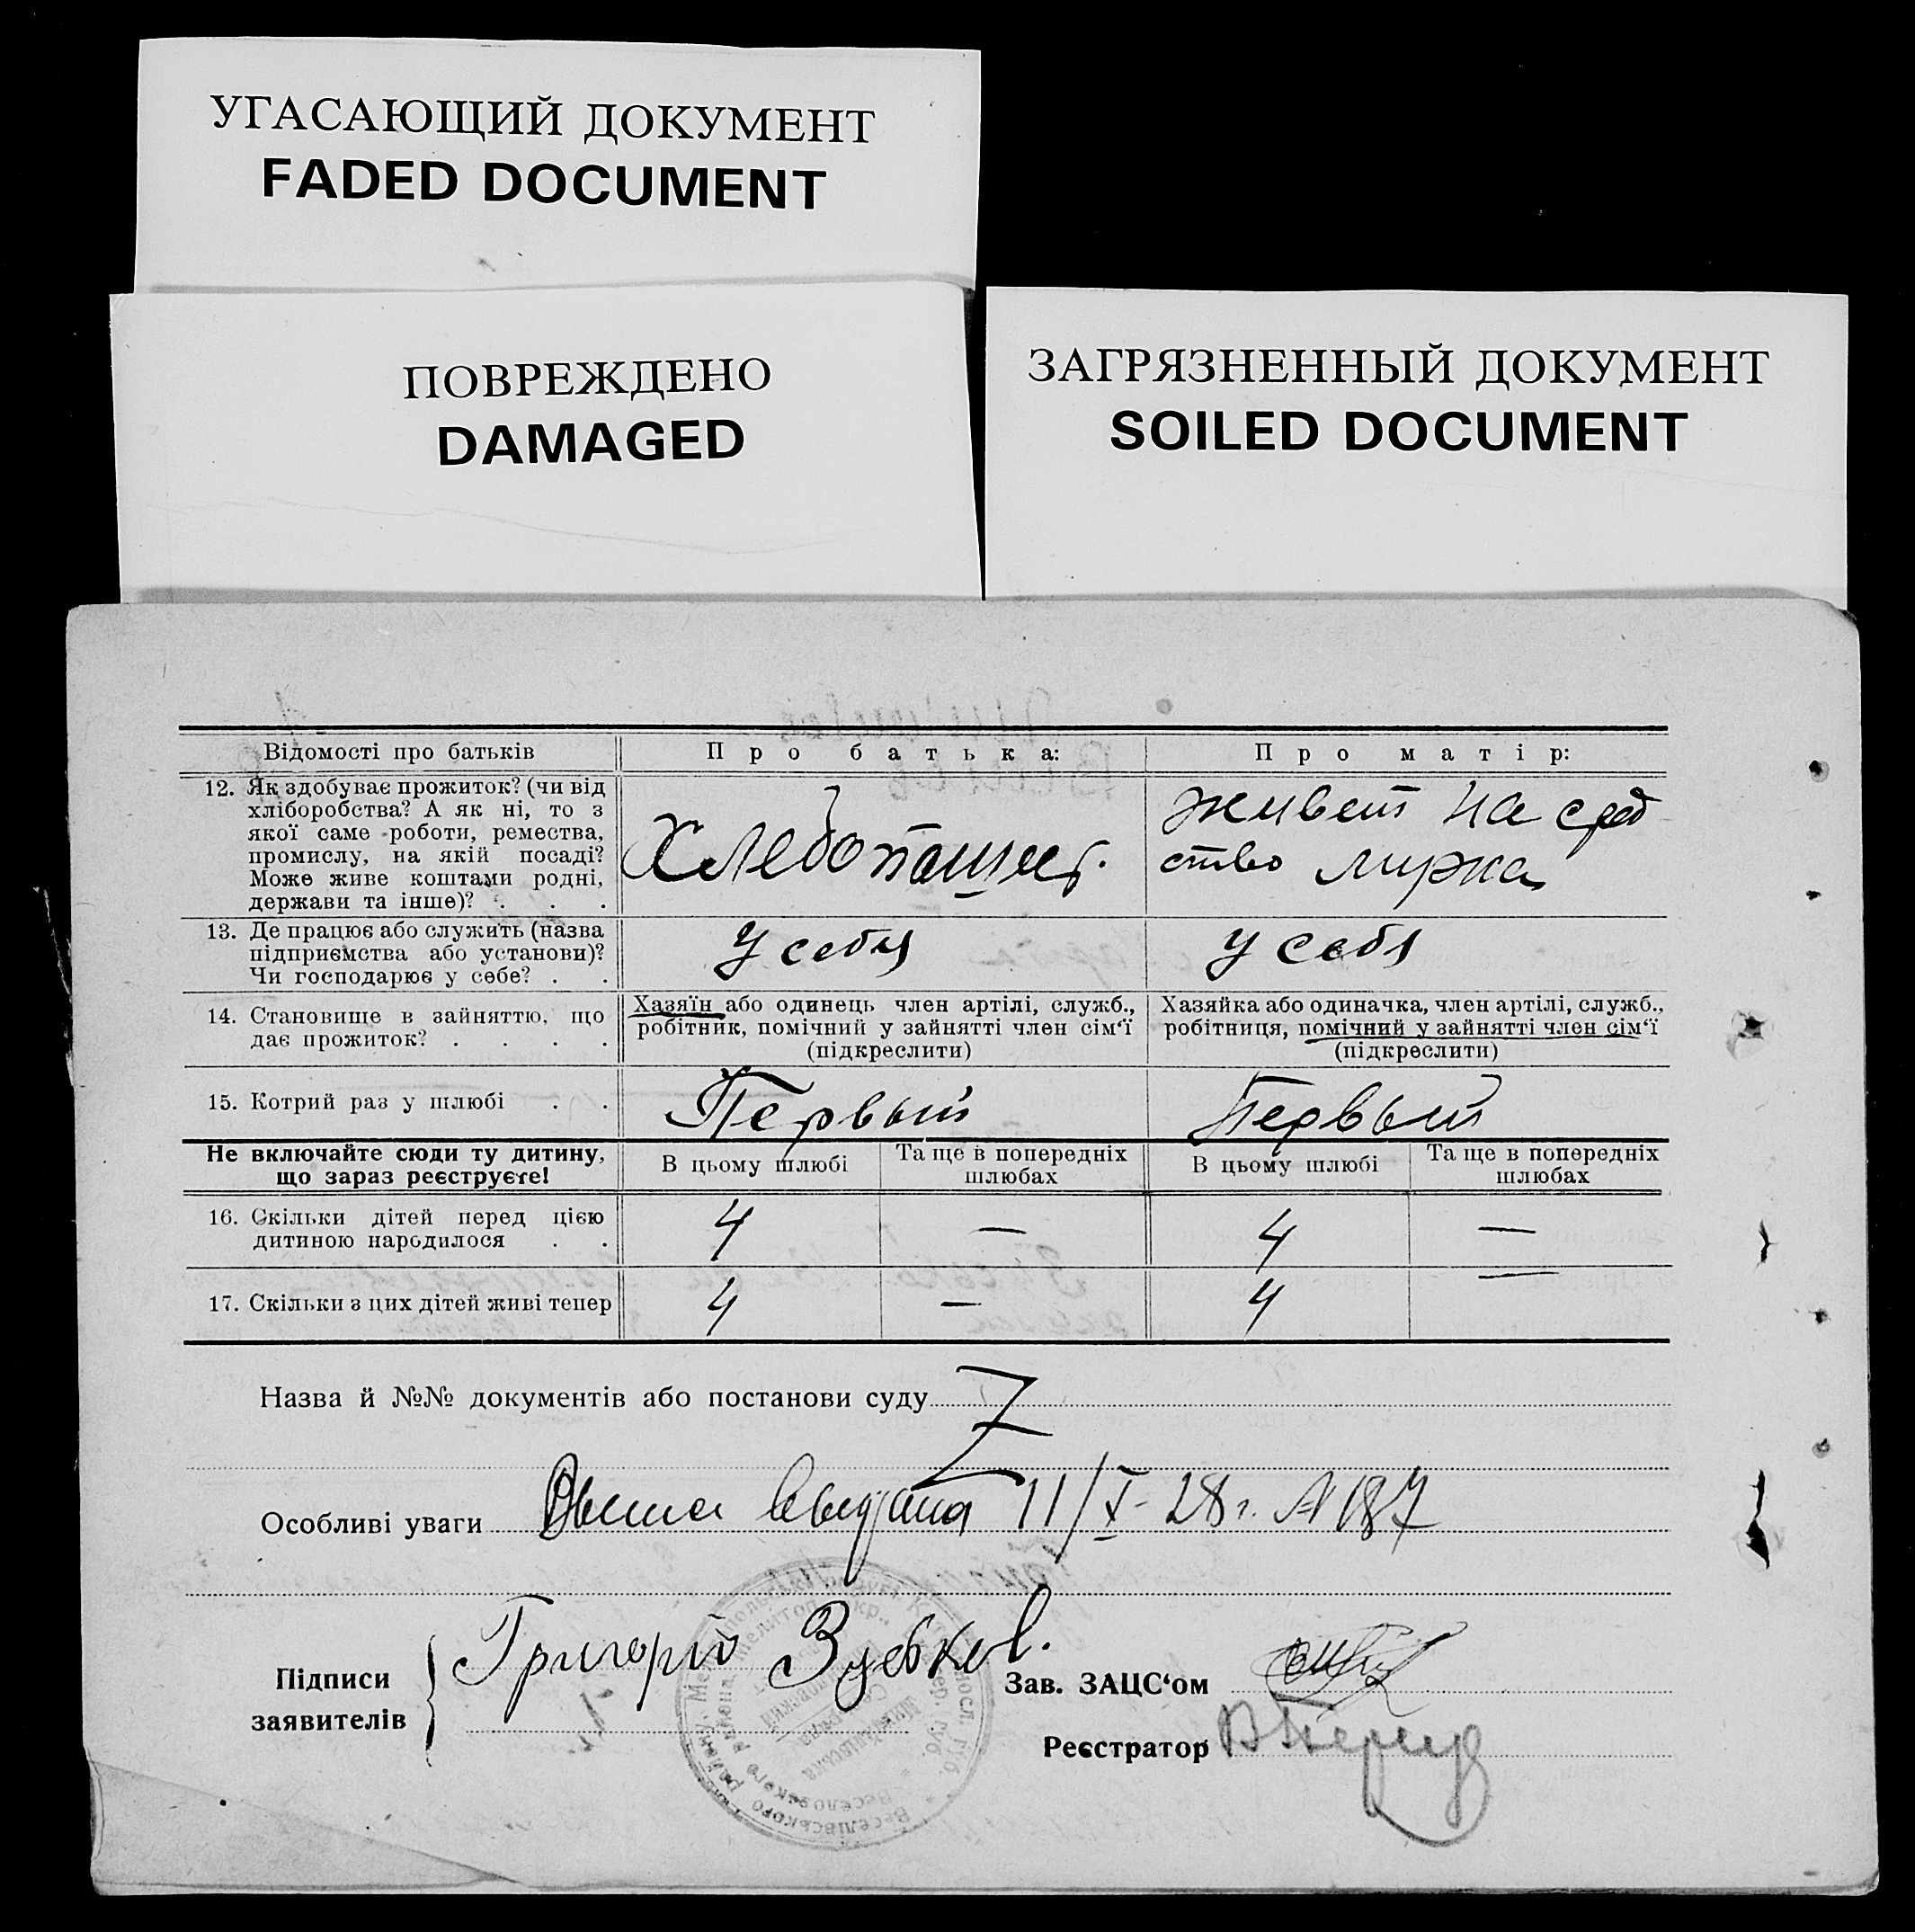 УГАСАЮЩИЙ ДОКУМЕНТ
FADED DOCUMENT
ПОВРЕЖДЕНО
DAMAGED
ЗАГРЯЗНЕННЫЙ ДОКУМЕНТ
SOILED DOCUMENT
Відомості про батьків
Про батька:
Про матір:
12. Як здобуває прожиток? (чи від
хліборобства? А як ні, то з
якої саме роботи, ремества,
промислу, на якій посаді?
Може живе коштами родні,
держави та інше)? . . .
Хлебопашец.
живет на сред
ство мужа
13. Де працює або служить (назва
підприємства або установи)?
Чи господарює у себе? . .
У себя
У себя
14. Становище в зайняттю, що
дає прожиток? . . . .
Хазяїн або одинець член артілі, служб.,
робітник, помічний у зайнятті член сім'ї
(підкреслити)
Хазяйка або одиначка, член артілі, служб.,
робітниця, помічний у зайнятті член сім'ї
(підкреслити)
15. Котрий раз у шлюбі . .
Первый
Первый
Не включайте сюди ту дитину,
що зараз реєструєте!
В цьому шлюбі
Та ще в попередніх
шлюбах
В цьому шлюбі
Та ще в попередніх
шлюбах
16. Скільки дітей перед цією
дитиною народилося . .
4 — 4 —
17. Скільки з цих дітей живі тепер
4 — 4 —
Назва й №№ документів або постанови суду
Z
Особливі уваги
11/X-28 г. № 187
Підписи
заявителів
Григорій Зубков.
Зав. ЗАЦС'ом
Реєстратор